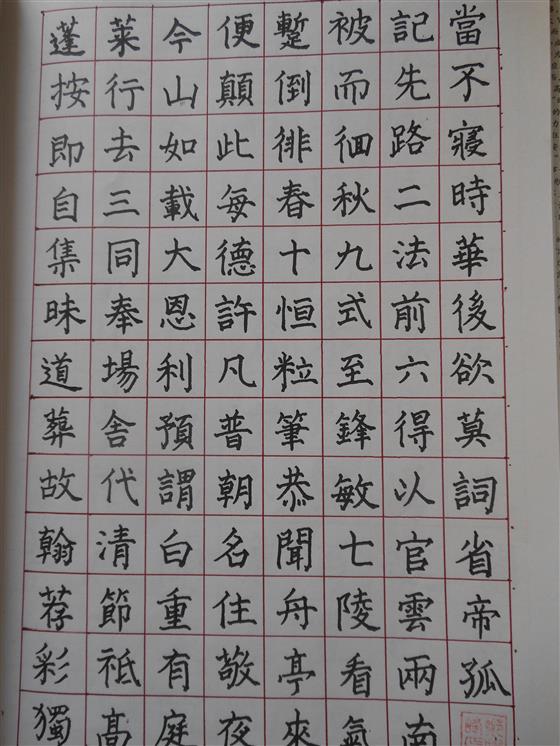 當不寢時華後欲莫詞省帝孤
記先路二法前六得以官雲兩南
被而徊秋九式至鋒敏七陵看氣
蹔倒徘春十恒粒筆恭聞舟亭來
便顛此每德許凡普朝名住敬夜
今山如載大恩利預謂白重有庭
萊行去三同奉場舍代清節祗高
蓬按即自集昧道葬故翰荐彩獨